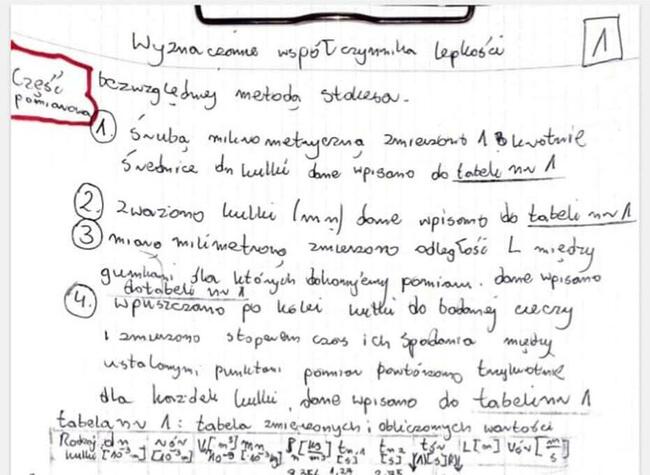 Wyznaczanie współczynnika lepkości
1
Część
pomiarowa
bezwzględnej metodą stokesa.
1. Śrubą mikrometryczną zmierzono 18 krotnie
Średnice dn kulki dane wpisano do tabeli nr 1
2. zważono kulki (mn) dane wpisano do tabeli nr 1
3 miarą milimetrową zmierzono odległość L między
gumkami dla których dokonujemy pomiaru. dane wpisano
do tabeli nr 1
4. Wpuszczano po kolei kulki do badanej cieczy
i zmierzono stoperem czas ich spadania między
ustalonymi punktami pomiar powtórzono trzykrotnie
dla każdej kulki, dane wpisano do tabeli nr 1
tabela nr 1: tabela zmierzonych i obliczonych wartości
Rodzaj dn rśr V[m³] mn ρ[kg/m³] tn,1 tn,2 tśr L[m] Vśr[m/s]
kulki [10⁻³m] [10⁻³m] 10⁻⁹ [s] [s]